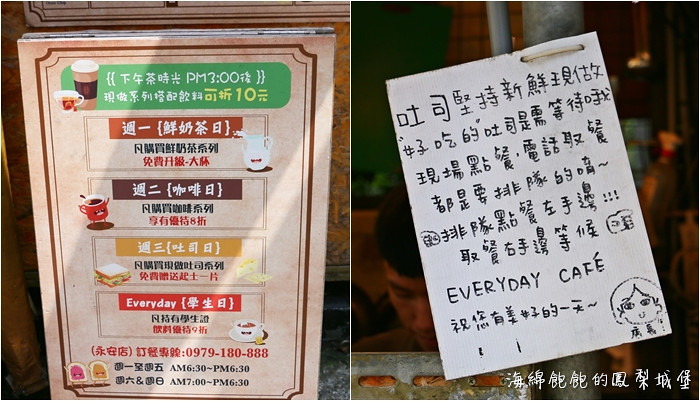 {{ 下午茶時光 PM3:00後 }}
現做系列搭配飲料可折10元
週一 {鮮奶茶日}
凡購買鮮奶茶系列
免費升級-大杯
週二 {咖啡日}
凡購買咖啡系列
享有優待8折
週三 {吐司日}
凡購買現做吐司系列
免費贈送起士一片
Everyday {學生日}
凡持有學生證
飲料優待9折
(永安店) 訂餐專線:0979-180-888
週一至週五 AM6:30~PM6:30
週六&週日 AM7:00~PM6:30
吐司堅持新鮮現做
"好吃的"吐司是需等待哦
現場點餐,電話取餐
都是要排隊的唷~
排隊點餐左手邊!!!
取餐右手邊等候
EVERYDAY CAFÉ
祝您有美好的一天~
海綿飽飽的鳳梨城堡